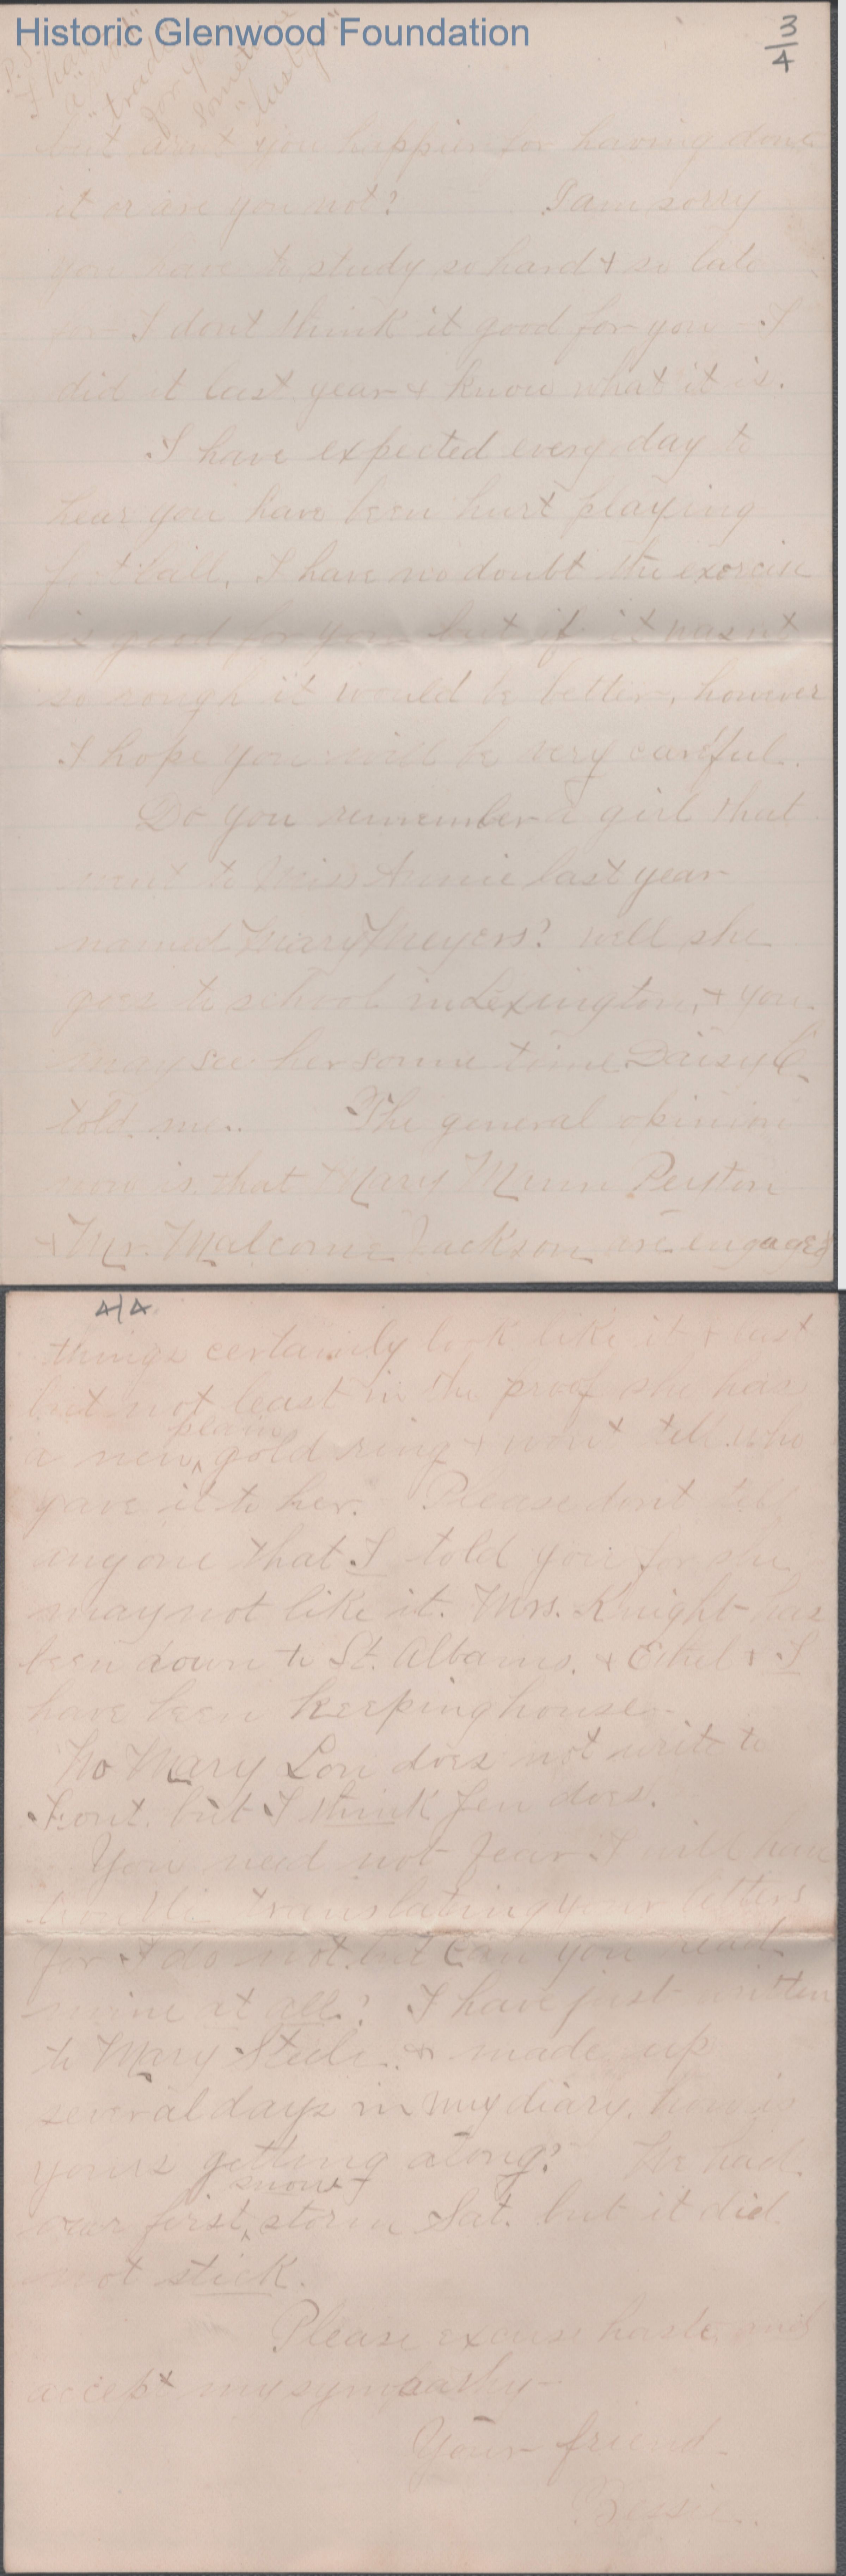 Historic Glenwood Foundation
3/4
P.S.
I have
a
"trade"
for you
sometime
"busby"
but aren't you happier for having done
it or are you not? I am sorry
you have to study so hard & so late
for I dont think it good for you - I
did it last year & know what it is.
I have expected every day to
hear you have been hurt playing
foot ball. I have no doubt the exercise
is good for you but if it wasnt
so rough it would be better, however
I hope you will be very careful.
Do you remember a girl that
went to Miss Annie last year
named Mary Meyers? well she
goes to school in Lexington, & you
may see her some time. Daisy C.
told me.. The general opinion
now is that Mary Mann
& Mr. Malcome Jackson are engaged
4/4
things certainly look like it & last
but not least in the proof she has
a new plain gold ring & wont tell who
gave it to her. Please dont tell
anyone that I told you for she
may not like it. Mrs. Knight has
been down to St. Albans. & Ethel & I
have been keeping house.
No Mary Lou does not write to
Font. but I think Jen does.
You need not fear I will have
trouble translating your letters
for I do not. but can you read
mine at all? I have just written
to Mary Steele. & made up
several days in my diary. how is
yours getting along? We had
our first snow storm Sat. but it did
not stick.
Please excuse haste and
accept my sympathy -
Your friend
Bessie.